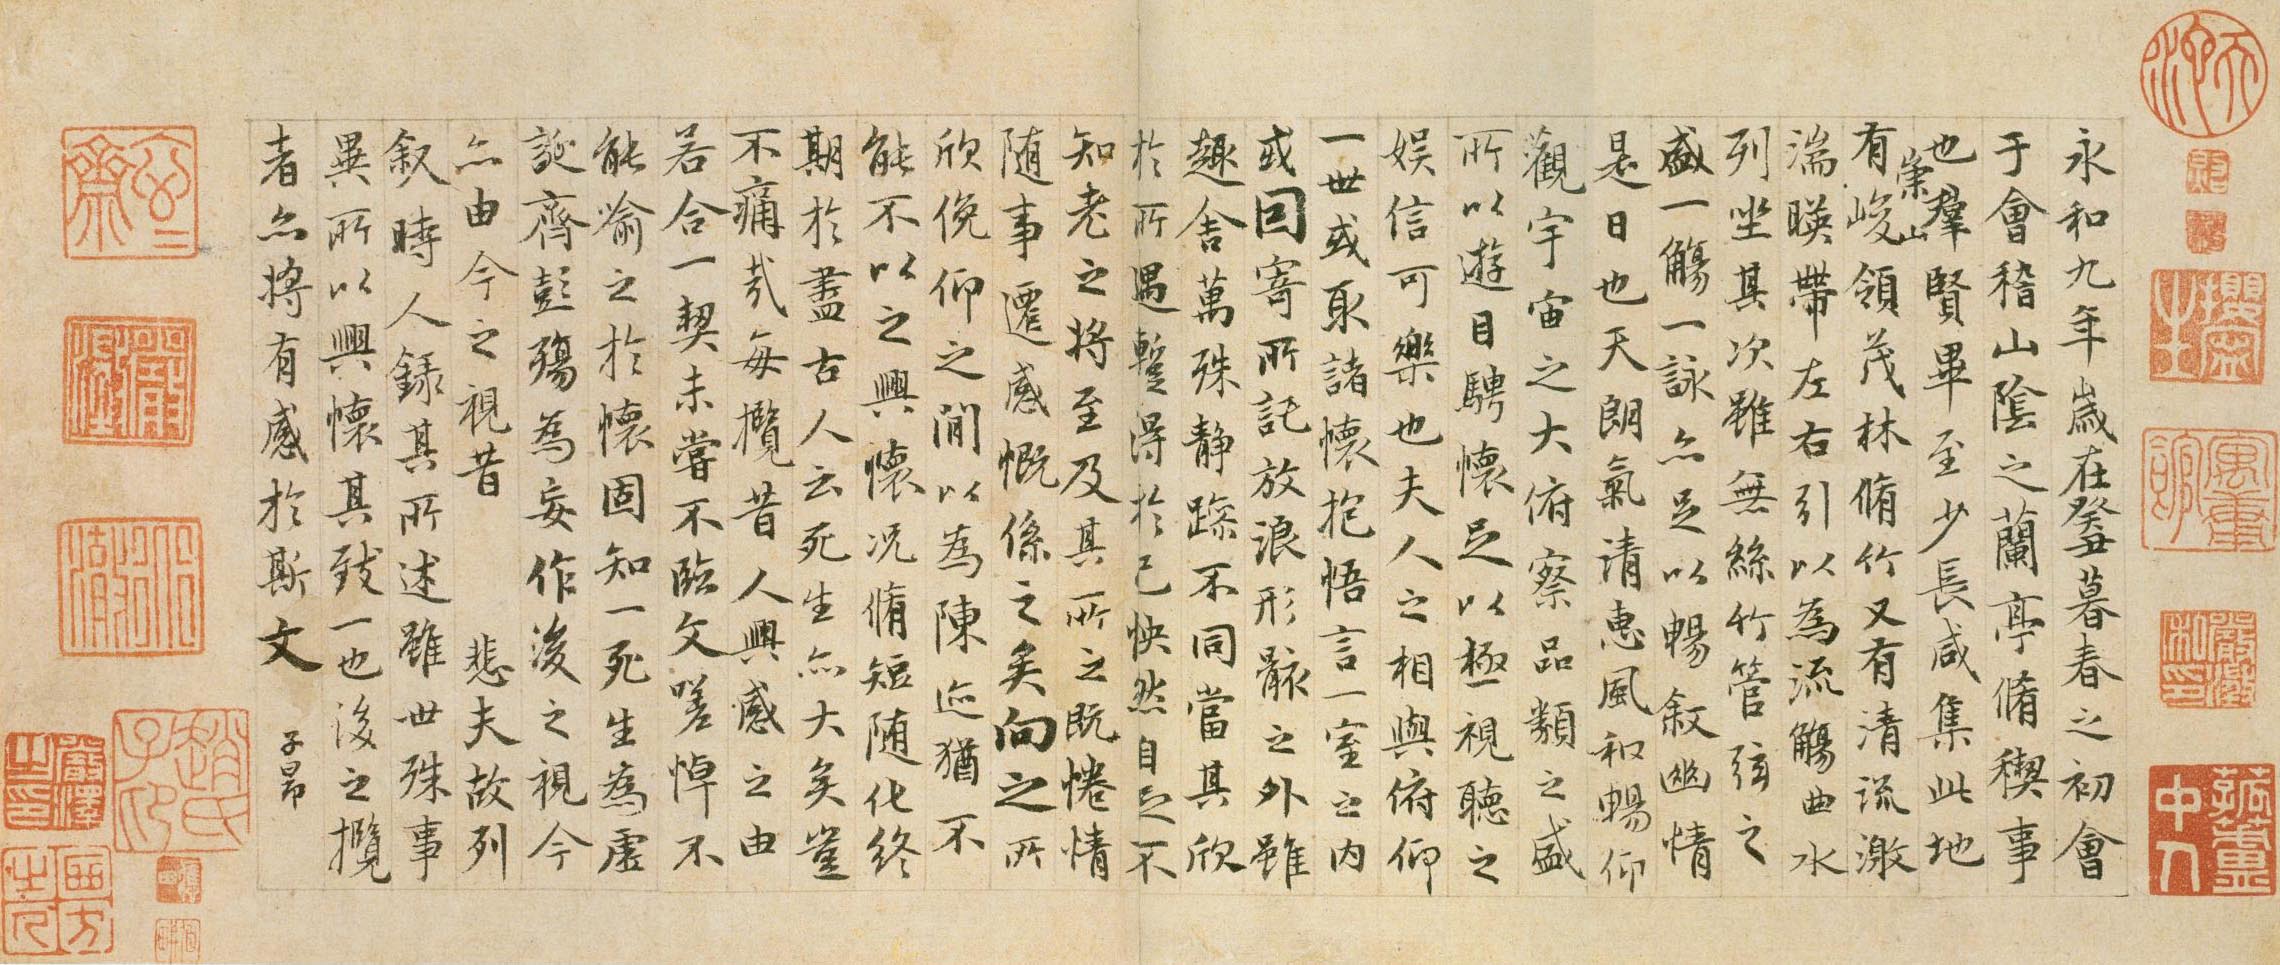 永和九年歲在癸丑暮春之初會
于會稽山陰之蘭亭脩稧事
也羣賢畢至少長咸集此地
有崇山峻領茂林脩竹又有清流激
湍暎帶左右引以為流觴曲水
列坐其次雖無絲竹管弦之
盛一觴一詠亦足以暢敘幽情
是日也天朗氣清惠風和暢仰
觀宇宙之大俯察品類之盛
所以遊目騁懷足以極視聽之
娛信可樂也夫人之相與俯仰
一世或取諸懷抱悟言一室之內
或因寄所託放浪形骸之外雖
趣舍萬殊静躁不同當其欣
於所遇蹔得於己怏然自足不
知老之將至及其所之既惓情
随事遷感慨係之矣向之所
欣俛仰之閒以為陳迹猶不
能不以之興懷況脩短随化終
期於盡古人云死生亦大矣豈
不痛哉每攬昔人興感之由
若合一契未嘗不臨文嗟悼不
能喻之於懷固知一死生為虛
誕齊彭殤為妄作後之視今
亦由今之視昔 悲夫故列
叙時人錄其所述雖世殊事
異所以興懷其致一也後之攬
者亦將有感於斯文
子昂
趙氏子印